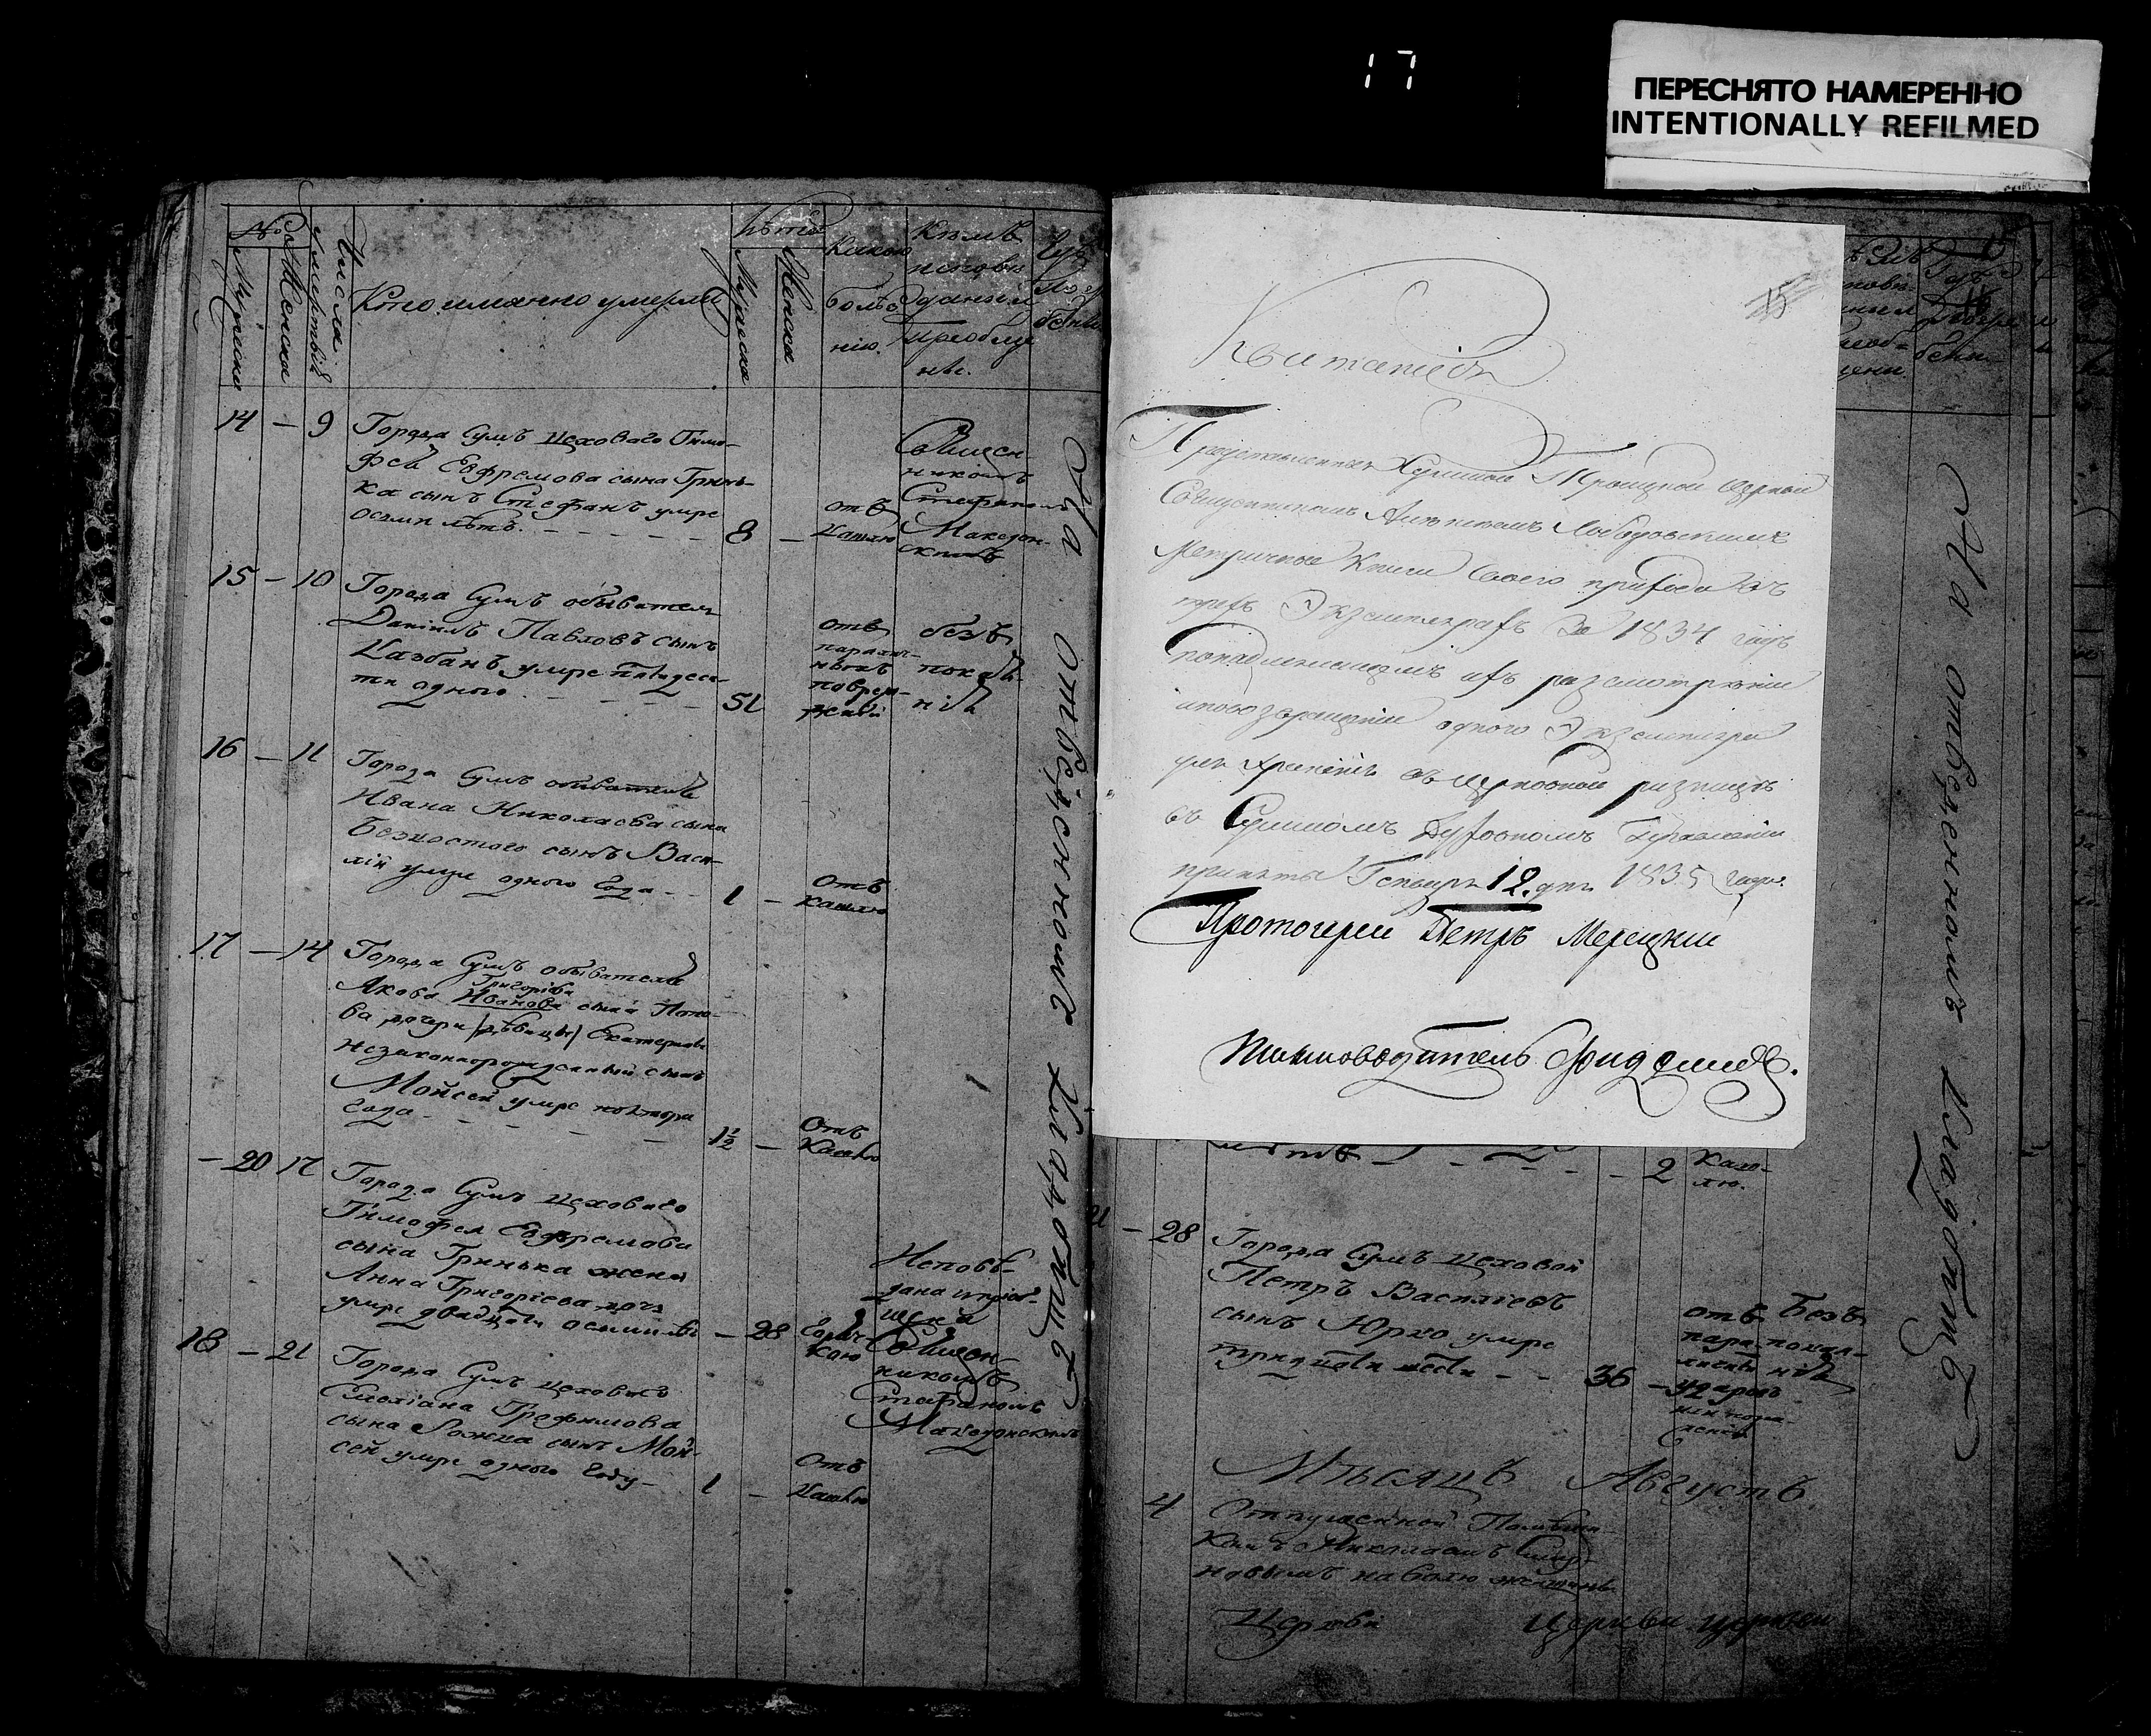 17
ПЕРЕСНЯТО НАМЕРЕННО
INTENTIONALLY REFILMED
№
Мужеска
Женска
Числа
Кто имянно умерли
Лѣта
Мужеска
Женска
Какою
болѣ
нію.
Кѣмъ
исповѣ
даны и
приобще
ны.
14 — 9
Города Сумъ цеховаго Тимо-
фея Евфремова сына Гринь-
ка сынъ Стефанъ умре
осьми лѣтъ.
8 —
отъ
кашлю
Священ
никомъ
Стефаномъ
Македон-
скимъ
15 — 10
Города Сумъ обыватель
Даніилъ Павловъ сынъ
умре пятдеся-
ти одного
51
отъ
безъ
покая-
нія
16 — 11
Города Сумъ обывателя
Ивана Николаева сына
Безхостого сынъ Васи-
лій умре одного года
1 —
Отъ
кашлю
17 — 14
Города Сумъ обывателя
Григоріева
Якова Иванова сына Попо-
ва дочери /дѣвицы/ Екатерины
незаконнорожденный сынъ
Мойсей умре полтора
года
1½ —
Отъ
Кашлю
— 20 17
Города Сумъ цеховаго
Тимофея Евфремова
сына Гринька жена
Анна Григоріева дочь
умре двадцати осьми лѣтъ
— 28
Исповѣ-
дана и приоб-
щена
Священ
никомъ
Стефаномъ
Македонскимъ
18 — 21
Города Сумъ цеховаго
Трофимова
сына Рожка сынъ Мой-
сей умре одного году
1 —
Отъ
Кашлю
На отведенномъ кладбищѣ
15
Квитанція
Представленныя Сумской Троицкой Церкви
Священникомъ Лободовскимъ
Метричные Книги своего прихода въ
трехъ Экземплярахъ За 1834 годъ
по надлежащемъ ихъ разсмотрѣніи
и по возвращеніи одного Экземпляра
для храненія въ церковной ризницѣ
въ Сумскомъ Духовномъ Правленіи
приняты Генваря 12. дня 1835 года.
Протоіерей Петръ Мерецкій
— 2
Каш-
лю.
21 — 28
Города Сумъ цеховой
Петръ Василіевъ
сынъ Юрко умре
тридцати шести
36 —
отъ
пара-
личнаго
удара
Безъ
покая-
нія
Мѣсяцъ Августъ
4
Отпущенной Помѣщи-
комъ Николаемъ Смир-
новымъ на волю
Церкви
Церкви церкви
На отведенномъ кладбищѣ